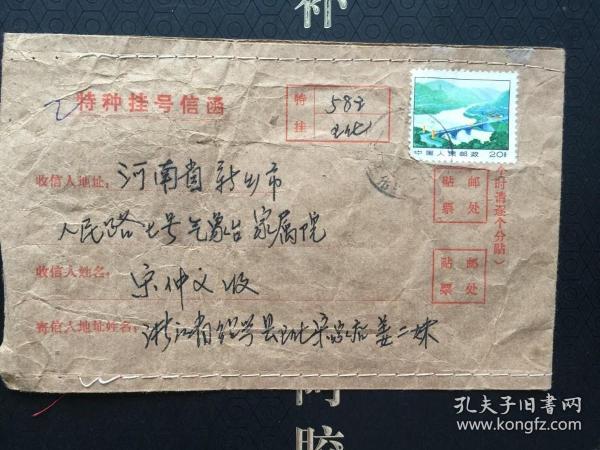 补
特种挂号信函
特挂
583
中国人民邮政 20分
收信人地址：河南省新乡市
人民路七号气象台家属院
收信人姓名：宋仲文收
寄信人地址姓名：浙江省绍兴县
姜二妹
贴邮票处
贴邮票处
时请逐个分贴）
孔夫子旧书网
www.kongfz.com